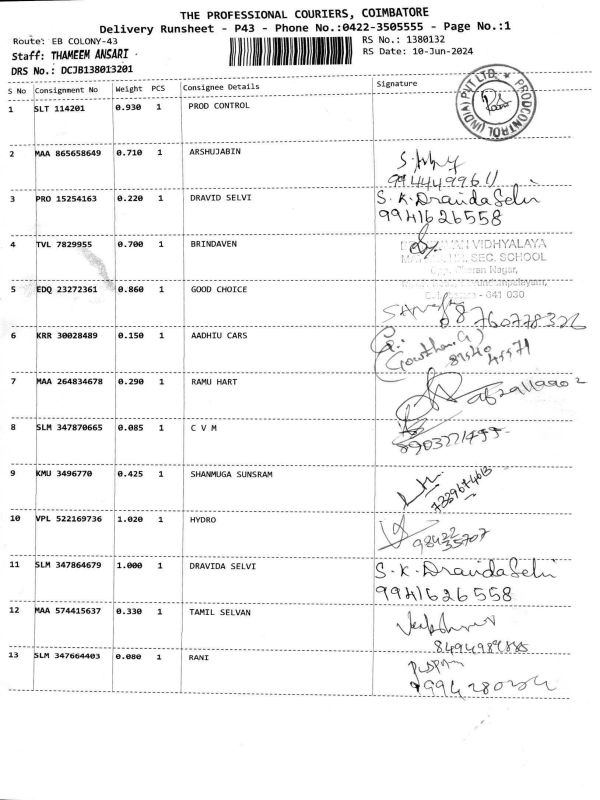 THE PROFESSIONAL COURIERS, COIMBATORE
Delivery Runsheet - P43 - Phone No.:0422-3505555 - Page No.:1
Route: EB COLONY-43 RS No.: 1380132
Staff: THAMEEM ANSARI . RS Date: 10-Jun-2024
DRS No.: DCJB138013201
S No Consignment No Weight PCS Consignee Details Signature
1 SLT 114201 0.930 1 PROD CONTROL
PRODCONTROL (INDIA) PVT LTD. *
2 MAA 865658649 0.710 1 ARSHUJABIN
3 PRO 15254163 0.220 1 DRAVID SELVI S. K. Dravida Selvi
9941626558
4 TVL 7829955 0.700 1 BRINDAVEN
VIDHYALAYA
SEC. SCHOOL
Nagar,
- 641 030
5 EDQ 23272361 0.860 1 GOOD CHOICE
8760778326
6 KRR 30028489 0.150 1 AADHIU CARS
7 MAA 264834678 0.290 1 RAMU HART
8 SLM 347870665 0.085 1 C V M
9 KMU 3496770 0.425 1 SHANMUGA SUNSRAM
10 VPL 522169736 1.020 1 HYDRO
98422
35707
11 SLM 347864679 1.000 1 DRAVIDA SELVI S. K. Dravida Selvi
9941626558
12 MAA 574415637 0.330 1 TAMIL SELVAN
13 SLM 347664403 0.080 1 RANI